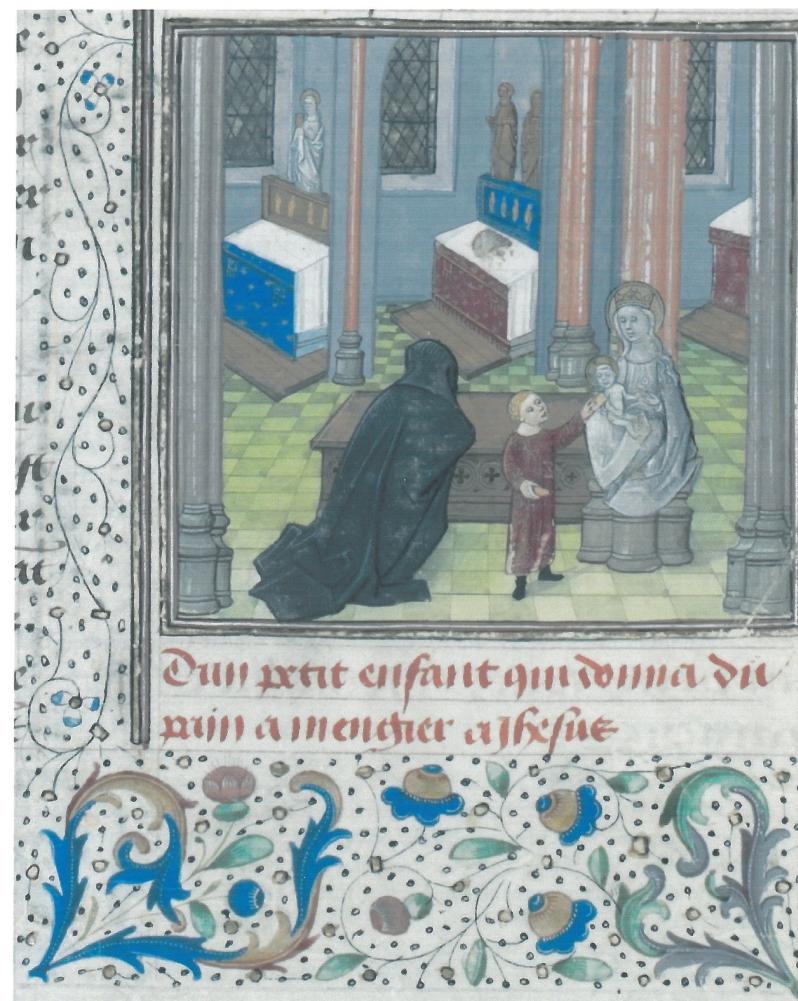 Dun petit enfant qui donna du
pain a mengier a Jhesus